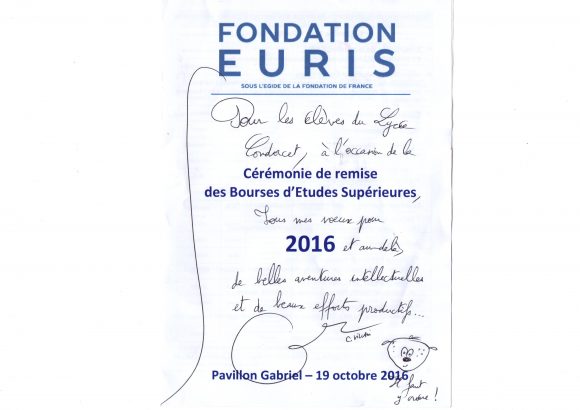 FONDATION
EURIS
SOUS L'EGIDE DE LA FONDATION DE FRANCE
Pour les élèves du Lycée
Condorcet, à l'occasion de la
Cérémonie de remise
des Bourses d'Etudes Supérieures,
Tous mes voeux pour
2016 et au-delà,
de belles aventures intellectuelles
et de beaux efforts productifs...
C. Villani
Pavillon Gabriel – 19 octobre 2016
Il faut
y croire !